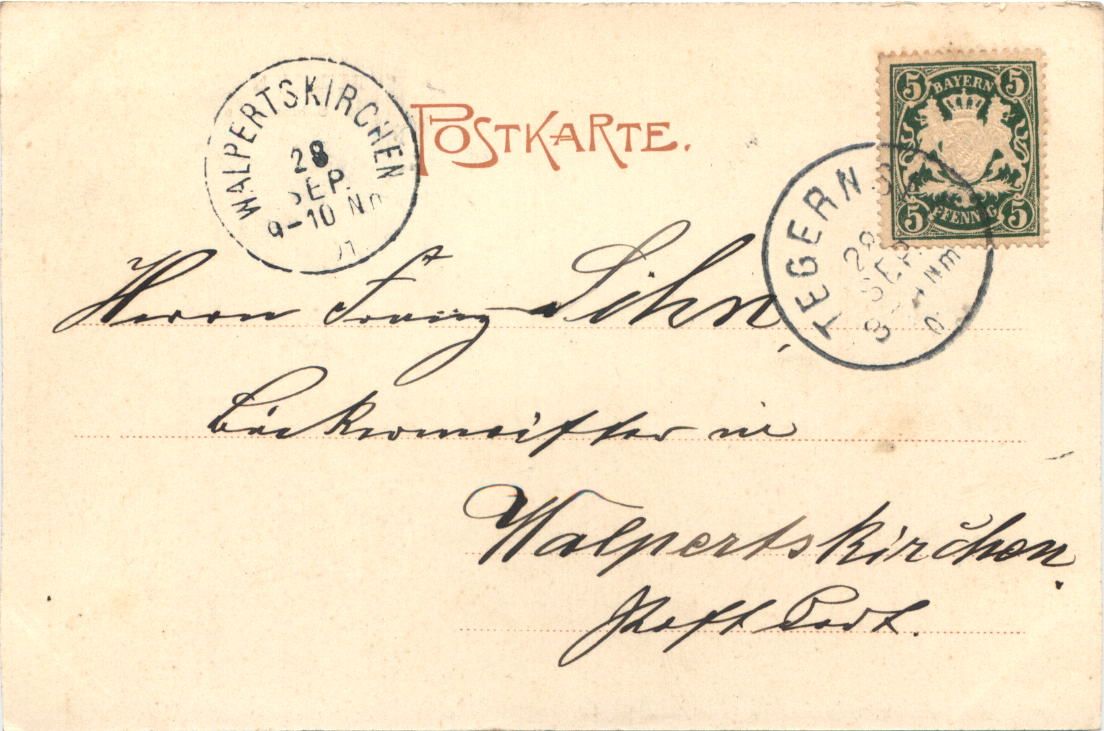 WALPERTSKIRCHEN
28
SEP.
9-10 Nm
POSTKARTE.
5 BAYERN 5
5 PFENNIG 5
TEGERNS
28
SEP.
8 Nm
Herrn Franz
Bäckermeister in
Walpertskirchen.
Post